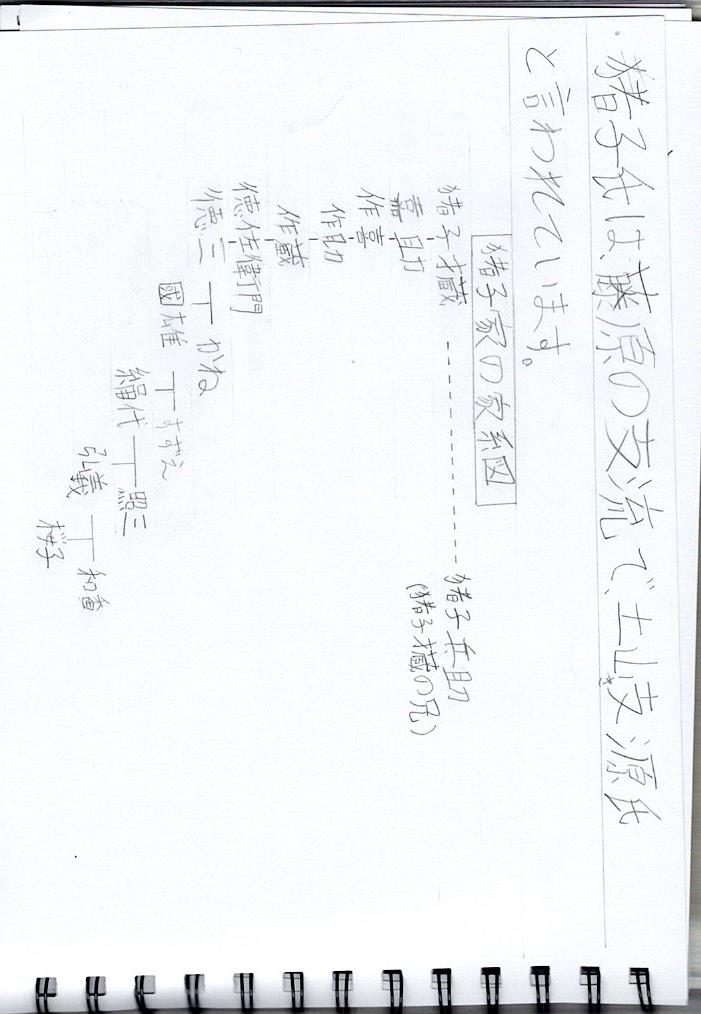 ・猪子氏は藤原の支流で、土岐源氏
き
と言われています。
猪子家の家系図
猪子才蔵 猪子兵助
(猪子才蔵の兄)
喜助
作喜
作助
作蔵
徳左衛門
徳三 かね
國雄 すずえ
絹代 照三
弘義 和重
桜子